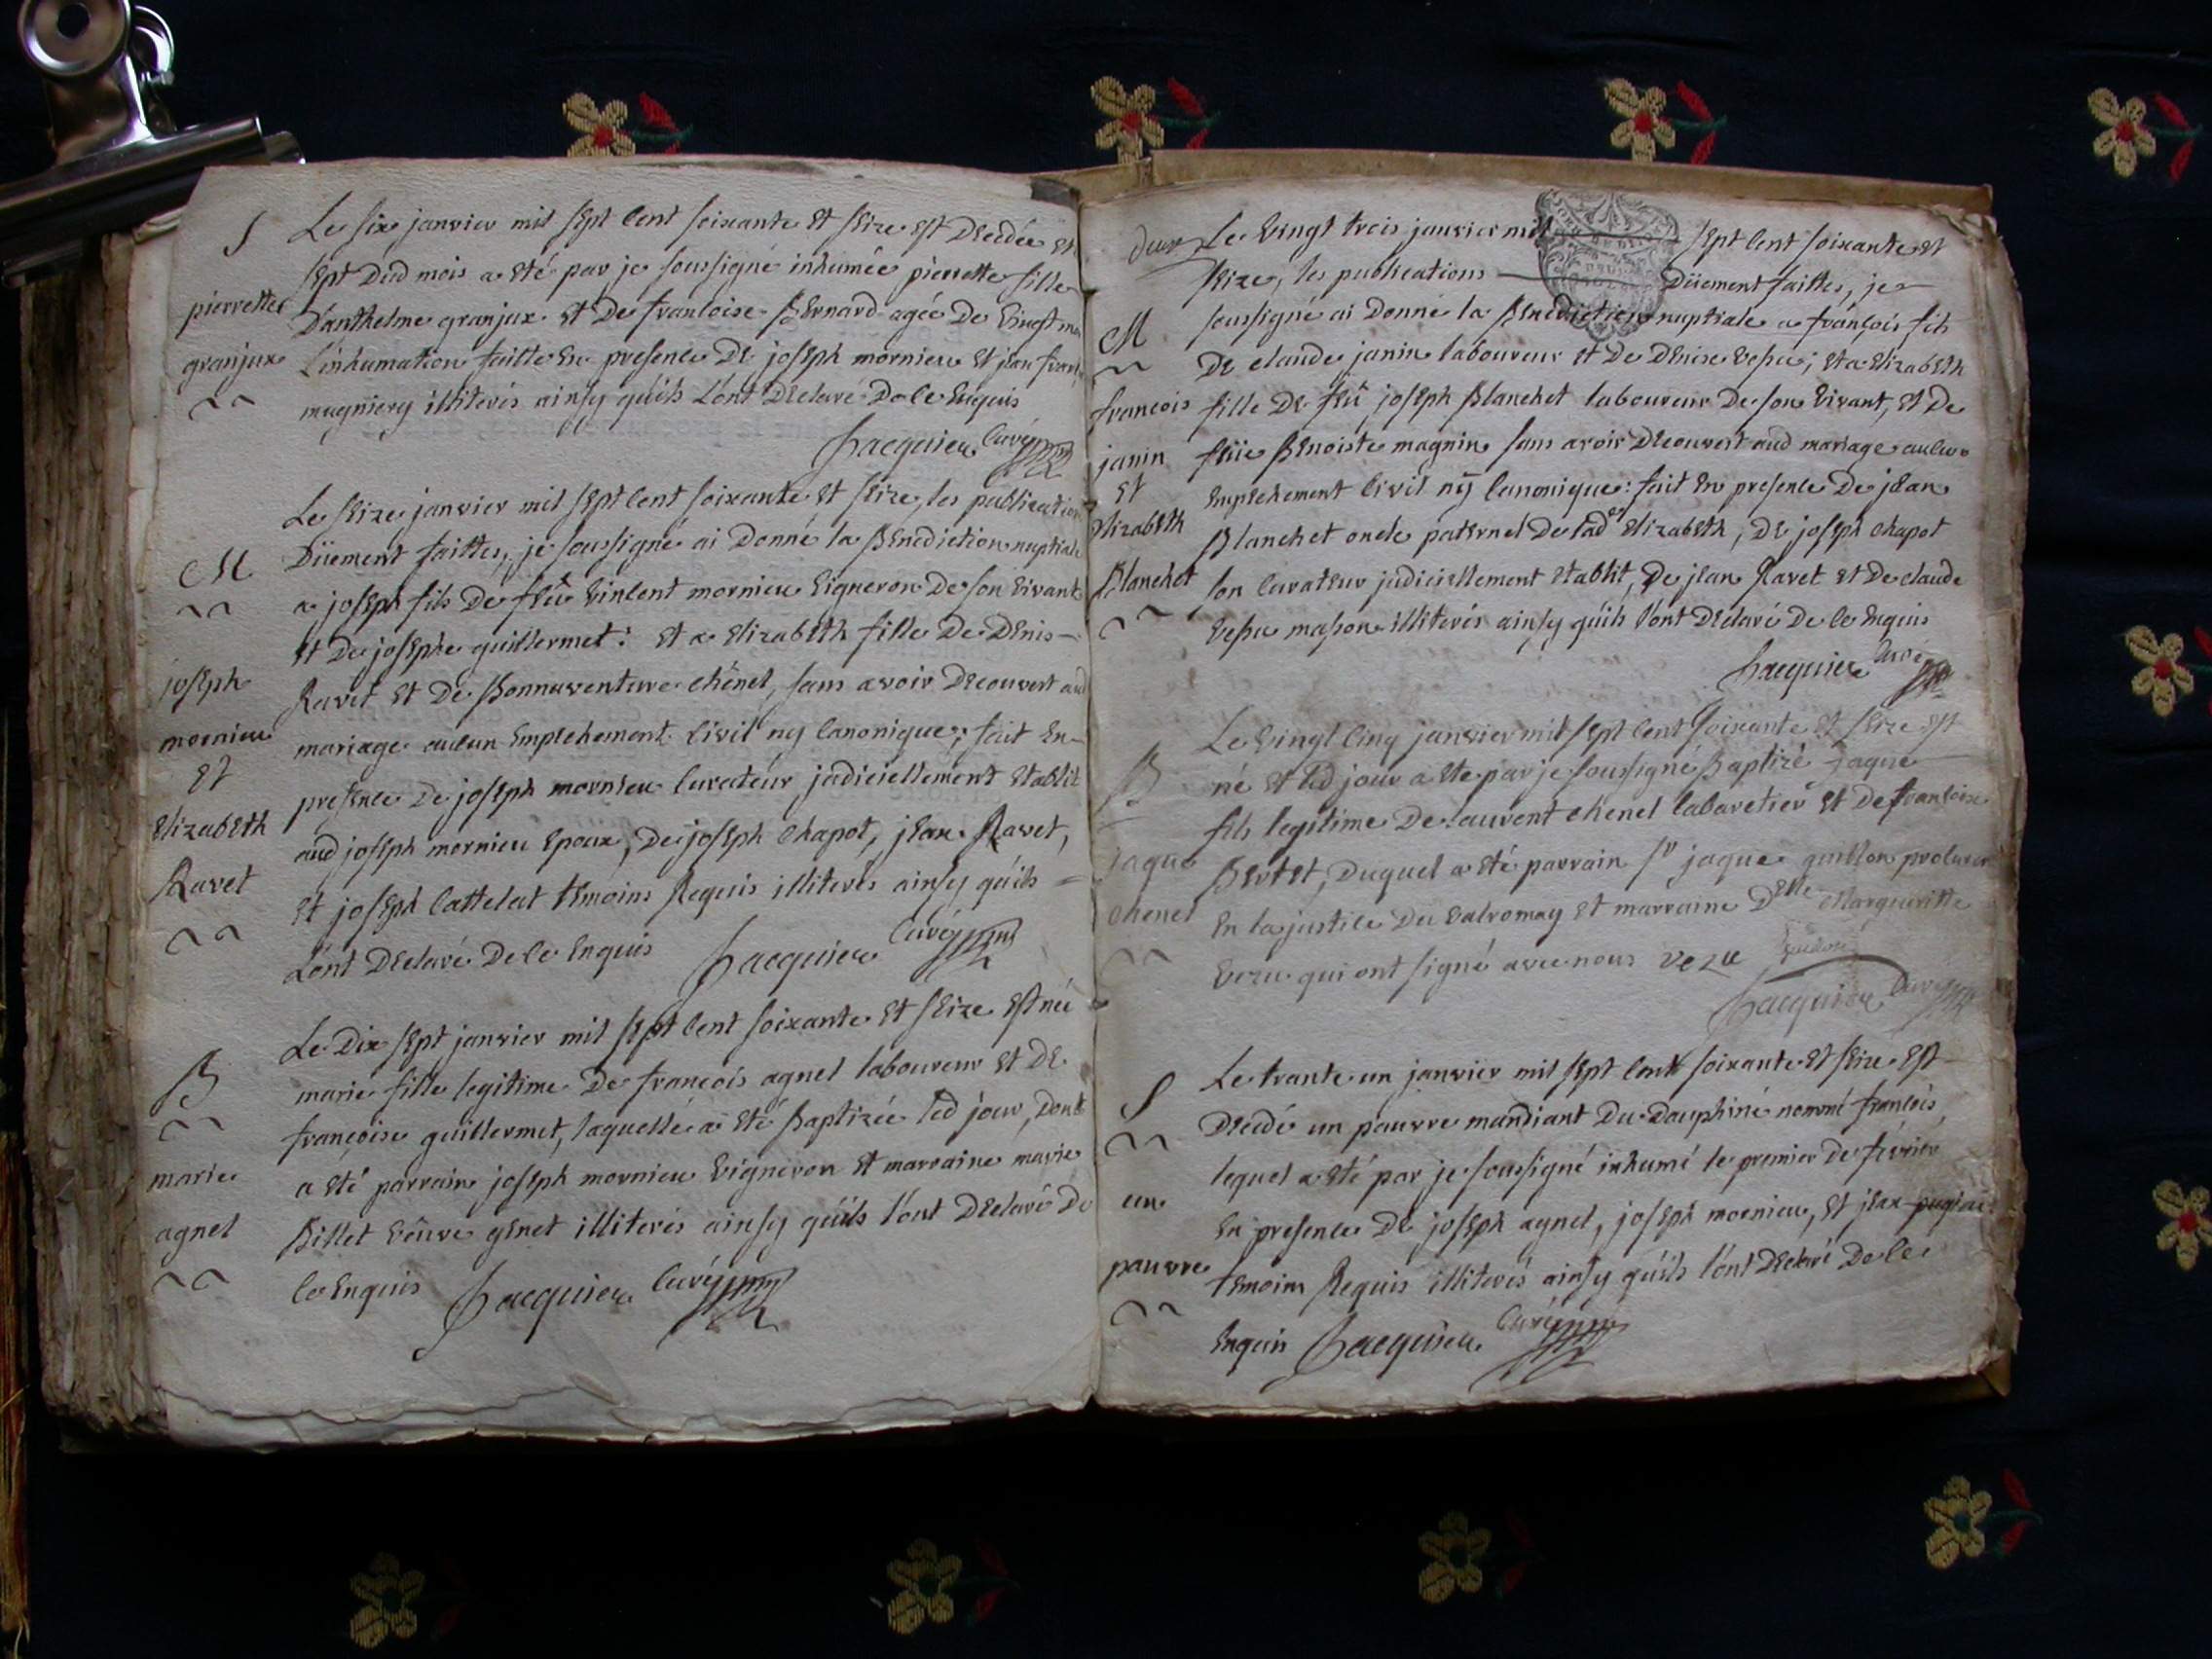 S
pierrette
granjux
Le six janvier mil sept cent soixante et seize est decedée et
sept dud mois a eté par je soussigné inhumée pierrette fille
d'anthelme granjux et de francoise Bernard agée de vingt mois
l'inhumation faitte en presence de joseph mornieu et jean
magniery illiterés ainsy quils l'ont declaré de ce enquis
Jacquier Curé
M
joseph
mornieu
et
Elizabeth
Ravet
Le seize janvier mil sept cent soixante et seize, les publications
düement faittes, je soussigné ai donné la Benediction nuptiale
a joseph fils de feû vincent mornieu vigneron de son vivant
et de josephe guillermet: et a Elizabeth fille de denis
Ravet et de Bonnaventure chênel, sans avoir decouvert aud
mariage aucun empechement civil ny canonique; fait en
presence de joseph mornieu curateur judiciellement etablit
aud joseph mornieu epoux, de joseph chapot, jean Ravet,
et joseph cattelat temoins Requis illiterés ainsy quils
l'ont declaré de ce enquis Jacquier Curé
B
marie
agnel
Le dix sept janvier mil sept cent soixante et seize est née
marie fille legitime de francois agnel laboureur et de
françoise guillermet, laquelle a eté Baptizée led jour, dont
a eté parrain joseph mornieu vigneron et marraine marie
Billet veûve genet illiterés ainsy quils l'ont declaré de
ce enquis Jacquier Curé
deux
M
francois
janin
et
Elizabeth
Blanchet
Le vingt trois janvier mil sept cent soixante et
seize, les publications düement faittes, je
soussigné ai donné la Benediction nuptiale a françois fils
de claude janin laboureur et de denise vessu; et a Elizabeth
fille de feû joseph Blanchet laboureur de son vivant, et de
feüe Benoiste magnin sans avoir decouvert aud mariage aucun
empechement civil ny canonique: fait en presence de jean
Blanchet oncle paternel de lad Elizabeth, de joseph chapot
son curateur judiciellement etablit, de jean Ravet et de claude
vessu masson illiterés ainsy quils l'ont declaré de ce enquis
Jacquier Curé
B
jaque
chenel
Le vingt cinq janvier mil sept cent soixante et seize est
né et led jour a ete par je soussigné Baptizé jaque
fils legitime de laurent chenel cabaretier et de francoise
Bertet, duquel a eté parrain sr jaque guillon procureur
en la justice du valromay et marraine delle Margueritte
vezu qui ont signé avec nous vezu
Jacquier Curé
S
un
pauvre
Le trante un janvier mil sept cent soixante et seize est
decedé un pauvre mandiant du dauphiné nommé francois
lequel a eté par je soussigné inhumé le premier de février
en presence de joseph agnel, joseph mornieu, et jean
temoins Requis illiterés ainsy quils l'ont declaré de ce
enquis Jacquier Curé